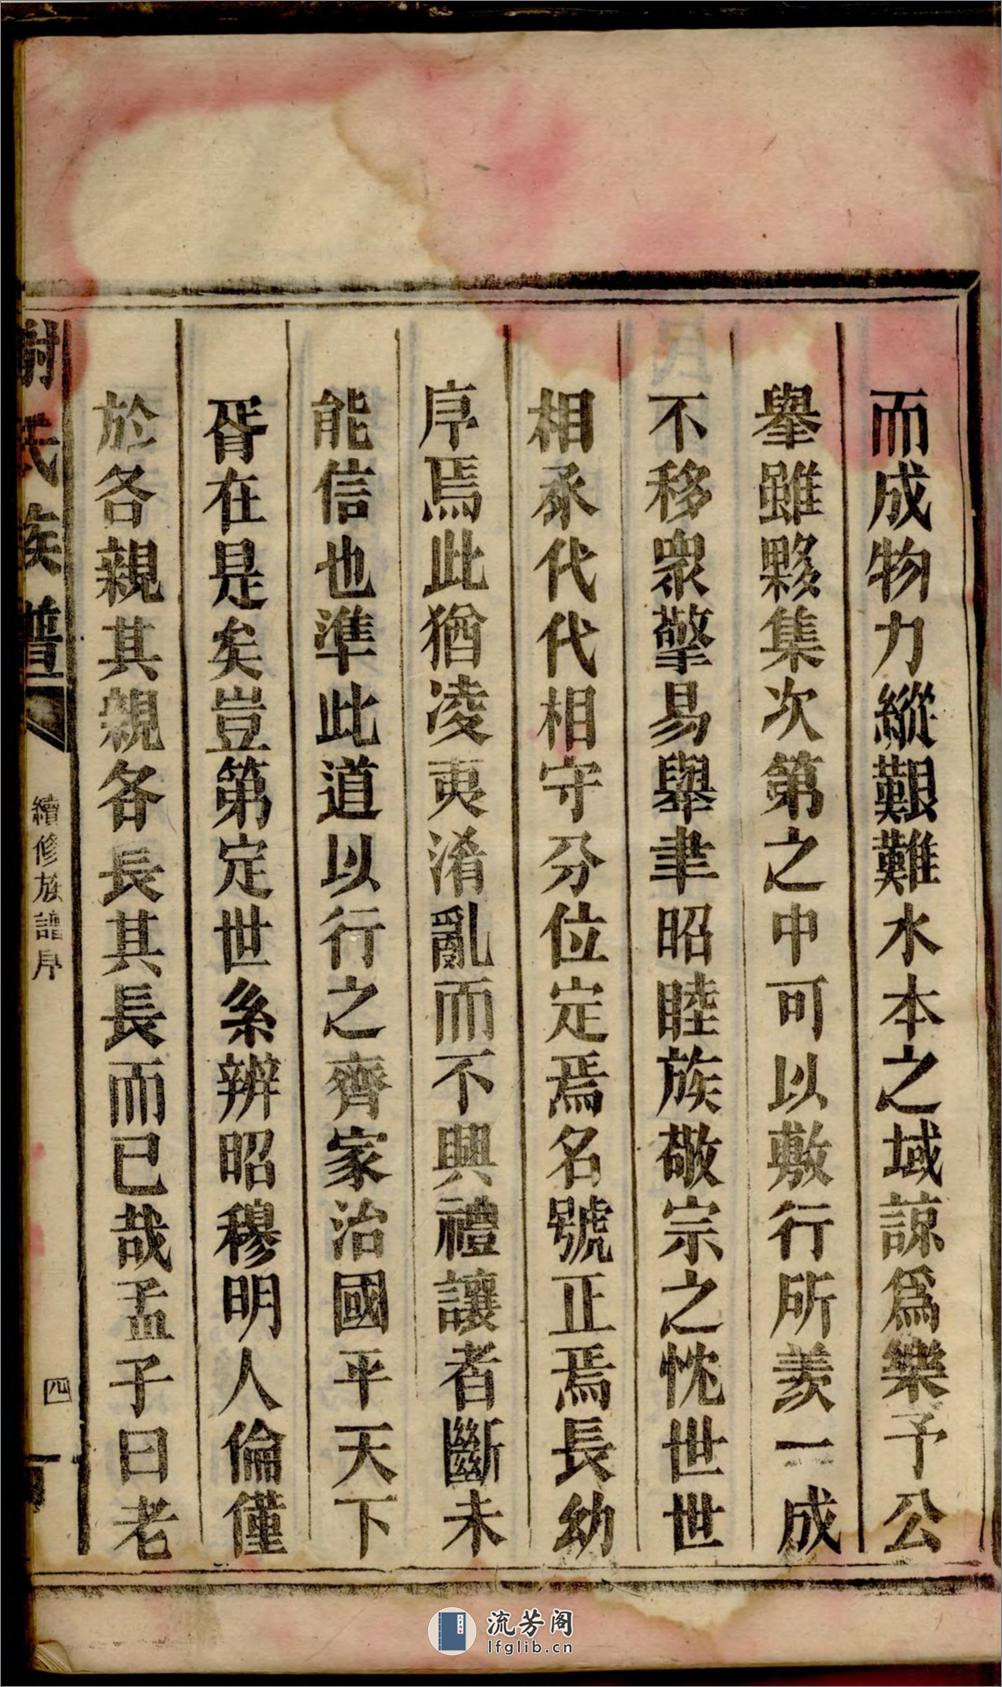 而成物力縱艱難水本之域諒爲樂予公
舉雖夥集次第之中可以敷行所羨一成
不移衆擎易舉聿昭睦族敬宗之忱世世
相承代代相守分位定焉名號正焉長幼
序焉此猶凌夷淆亂而不興禮讓者斷未
能信也準此道以行之齊家治國平天下
胥在是矣豈第定世系辨昭穆明人倫僅
於各親其親各長其長而已哉孟子曰老
謝氏族譜
續修族譜序
四
流芳阁
lfglib.cn